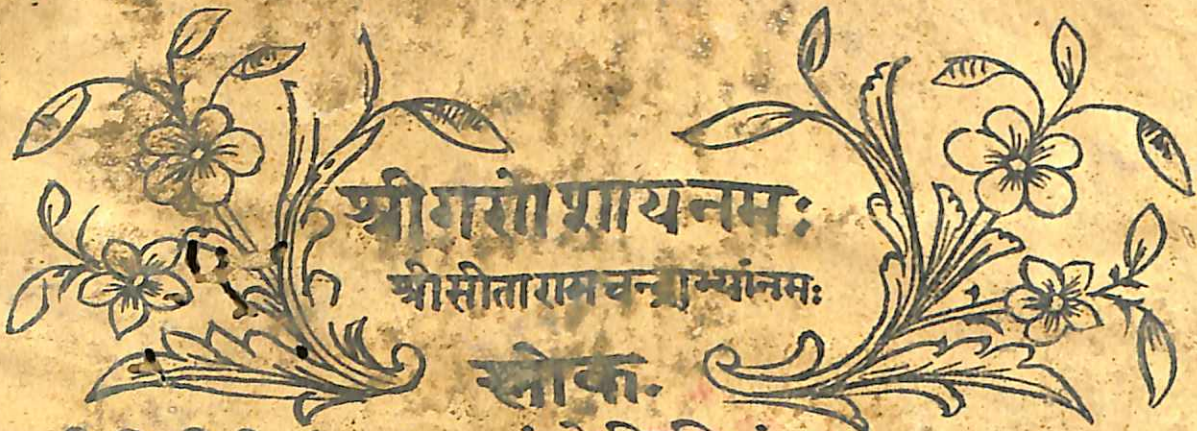 श्रीगणेशायनमः
श्रीसीतारामचन्द्राभ्यांनमः
श्लोक.